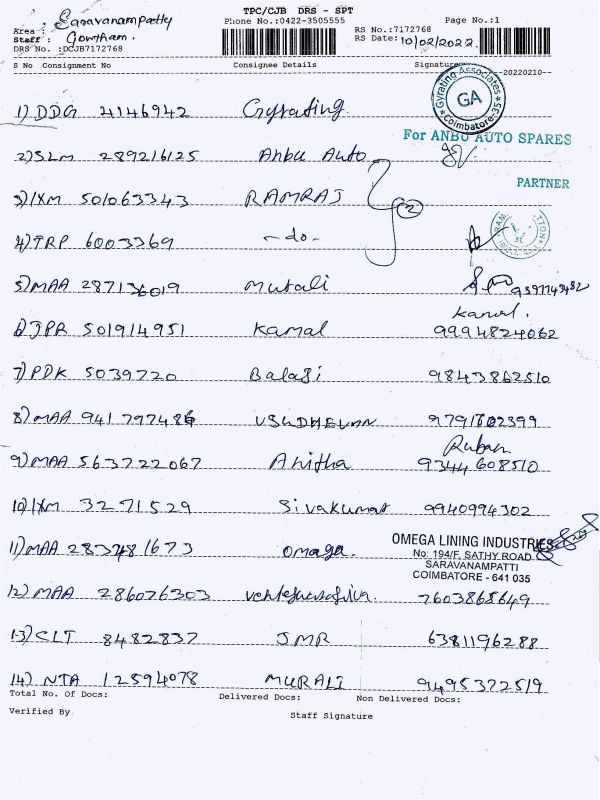 TPC/CJB DRS - SPT
Area : Saravanampatty Phone No.:0422-3505555 RS No.:7172768 Page No.:1
Staff : Gowtham. RS Date: 10/02/2022
DRS No. :DCJB7172768
S No Consignment No Consignee Details Signature 20220210--
Gyrating Associates GA Coimbatore-35
1) DDG 4146942 Gyrating
For ANBU AUTO SPARES
2) SLM 289216125 Anbu Auto
PARTNER
3) IXM 501063343 RAMRAJ 2
4) TRP 6003369 -do-
5) MAA 287136019 Murali
Kamal.
6) JPR 501914951 Kamal 9994824062
7) PDK 5039720 Balaji 9843862510
8) MAA 941797486 9791602399
Ruban
9) MAA 563722067 Anitha 9344608510
10) IXM 3271529 Sivakumar 9940994302
OMEGA LINING INDUSTRIES
11) MAA 283481673 omega.
No: 194/F, SATHY ROAD
SARAVANAMPATTI
COIMBATORE - 641 035
12) MAA 286076303 7603868649
13) CLT 8482837 JMR 6381196288
14) NTA 12594078 MURALI 9495372519
Total No. Of Docs: Delivered Docs: Non Delivered Docs:
Verified By Staff Signature